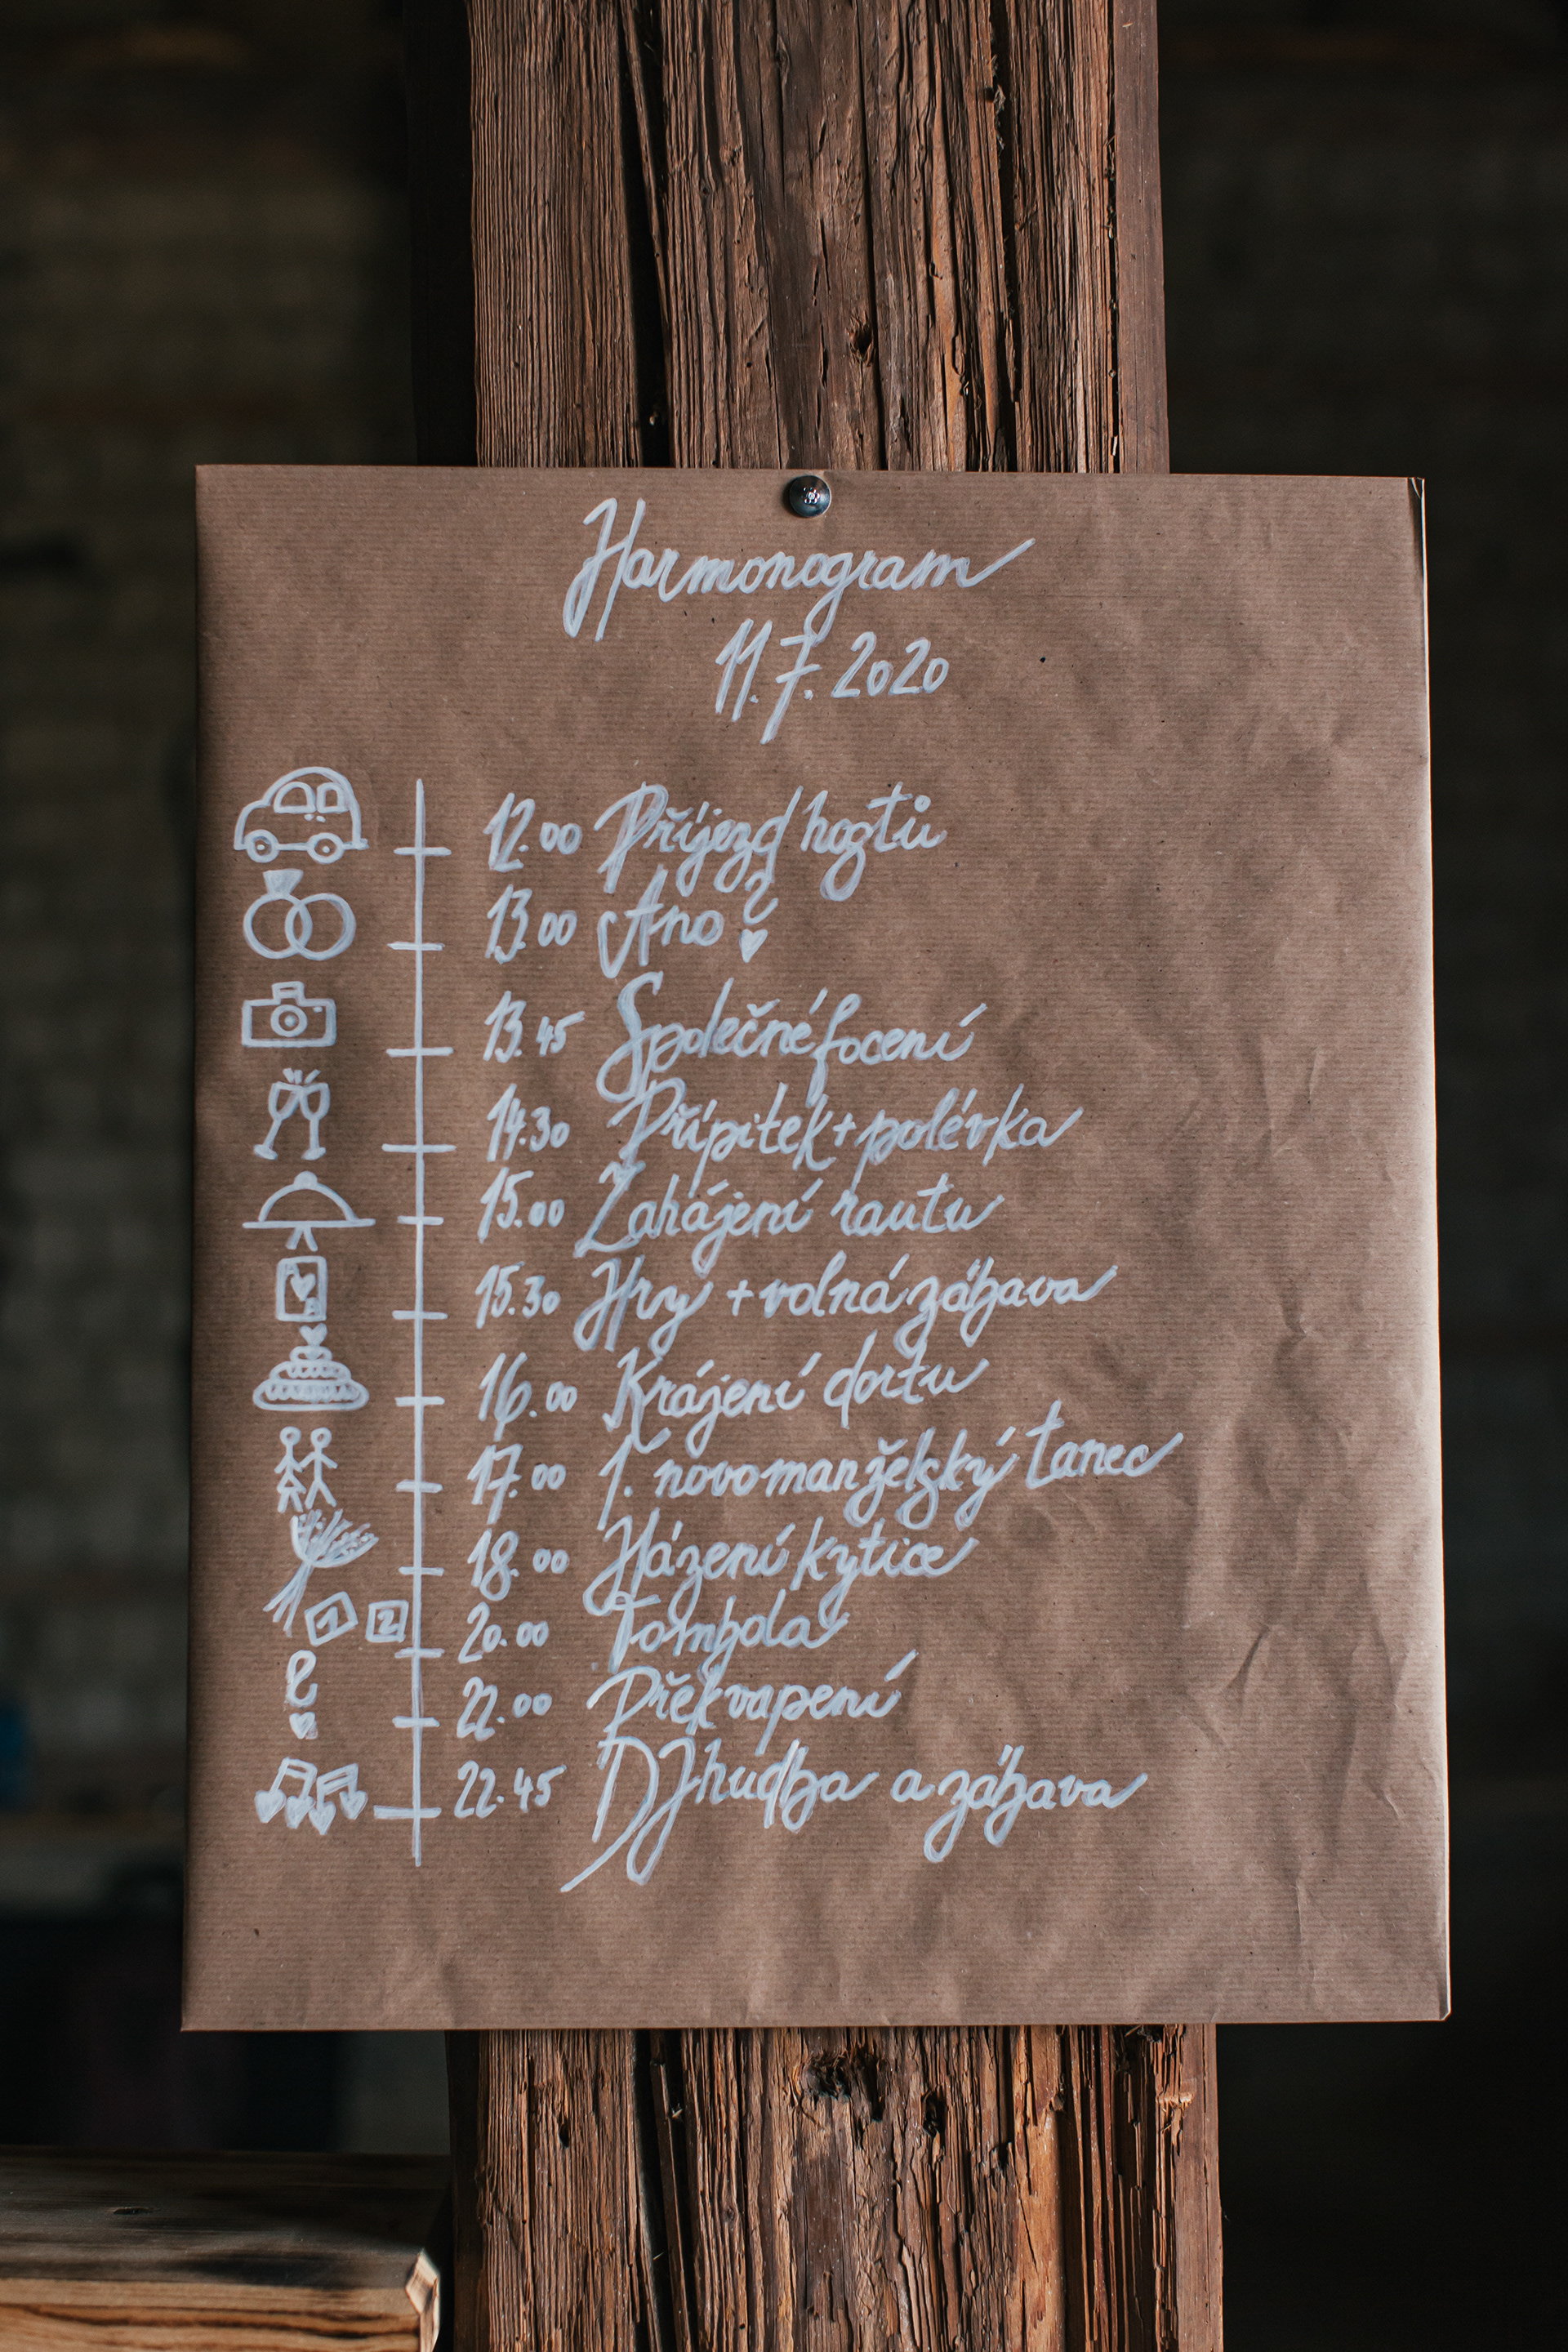 Harmonogram
11.7.2020
12.00 Příjezd hostů
13.00 Ano?
13.45 Společné focení
14.30 Přípitek + polévka
15.00 Zahájení rautu
15.30 Hry + volná zábava
16.00 Krájení dortu
17.00 1. novomanželský tanec
18.00 Házení kytice
1 2
20.00 Tombola
?
22.00 Překvapení
22.45 DJ hudba a zábava